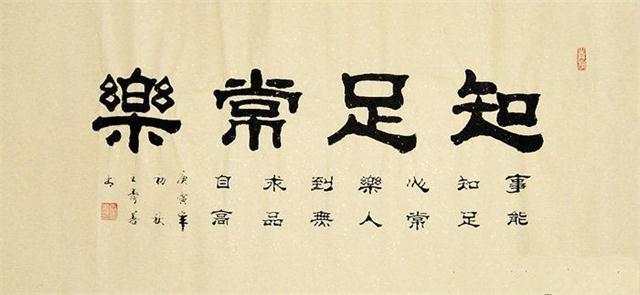 知足常樂
事能
知足
心常
樂人
到無
求品
自高
庚寅年
初秋